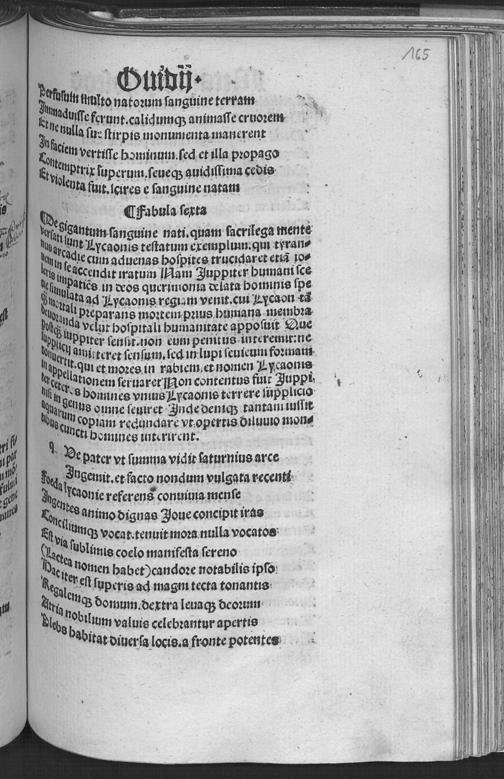 165
Ouidij.
Perfusum multo natorum sanguine terram
Immaduisse ferunt.calidumqꝫ animasse cruorem
Et ne nulla suę stirpis monumenta manerent
In faciem vertisse hominum.sed et illa propago
Contemptrix superum.seueqꝫ auidissima cedis
Et violenta fuit.scires e sanguine natam
¶Fabula sexta
¶De gigantum sanguine nati.quam sacrilega mente
versati sunt Lycaonis testatum exemplum.qui tyran-
nus arcadie cum aduenas hospites trucidaret etiā io-
uem in se accendit iratum Nam Juppiter humani sce
impatiēs in deos querimonia delata hominis spe
cie simulata ad Lycaonis regiam venit.cui Lycaon tā
qꝫ mortali preparans mortem prius humana membra
deuoranda velut hospitali humanitate apposuit Que
postqꝫ iuppiter sensit.non eum penitus interemit:ne
supplicij amitteret sensum.sed in lupi seuieum formam
conuertit.qui et mores in rabiem.et nomen Lycaonis
in appellationem seruaret Non contentus fuit Juppi
ter ceteros homines vnius Lycaonis terrere supplicio
nisi in genus omne seuiret Inde deniqꝫ tantam iussit
aquarum copiam redundare vt opertis diluuio mon-
tibus cuncti homines interirent.
q De pater vt summa vidit saturnius arce
Ingemit.et facto nondum vulgata recenti
Foeda lycaonie referens conuiuia mense
Ingentes animo dignas Joue concipit iras
Conciliumqꝫ vocat.tenuit mora nulla vocatos
Est via sublimis coelo manifesta sereno
(Lactea nomen habet)candore notabilis ipso
Hac iter est superis ad magni tecta tonantis
Regalemqꝫ domum.dextra leuaqꝫ deorum
Atria nobilium valuis celebrantur apertis
Plebs habitat diuersa locis.a fronte potentes